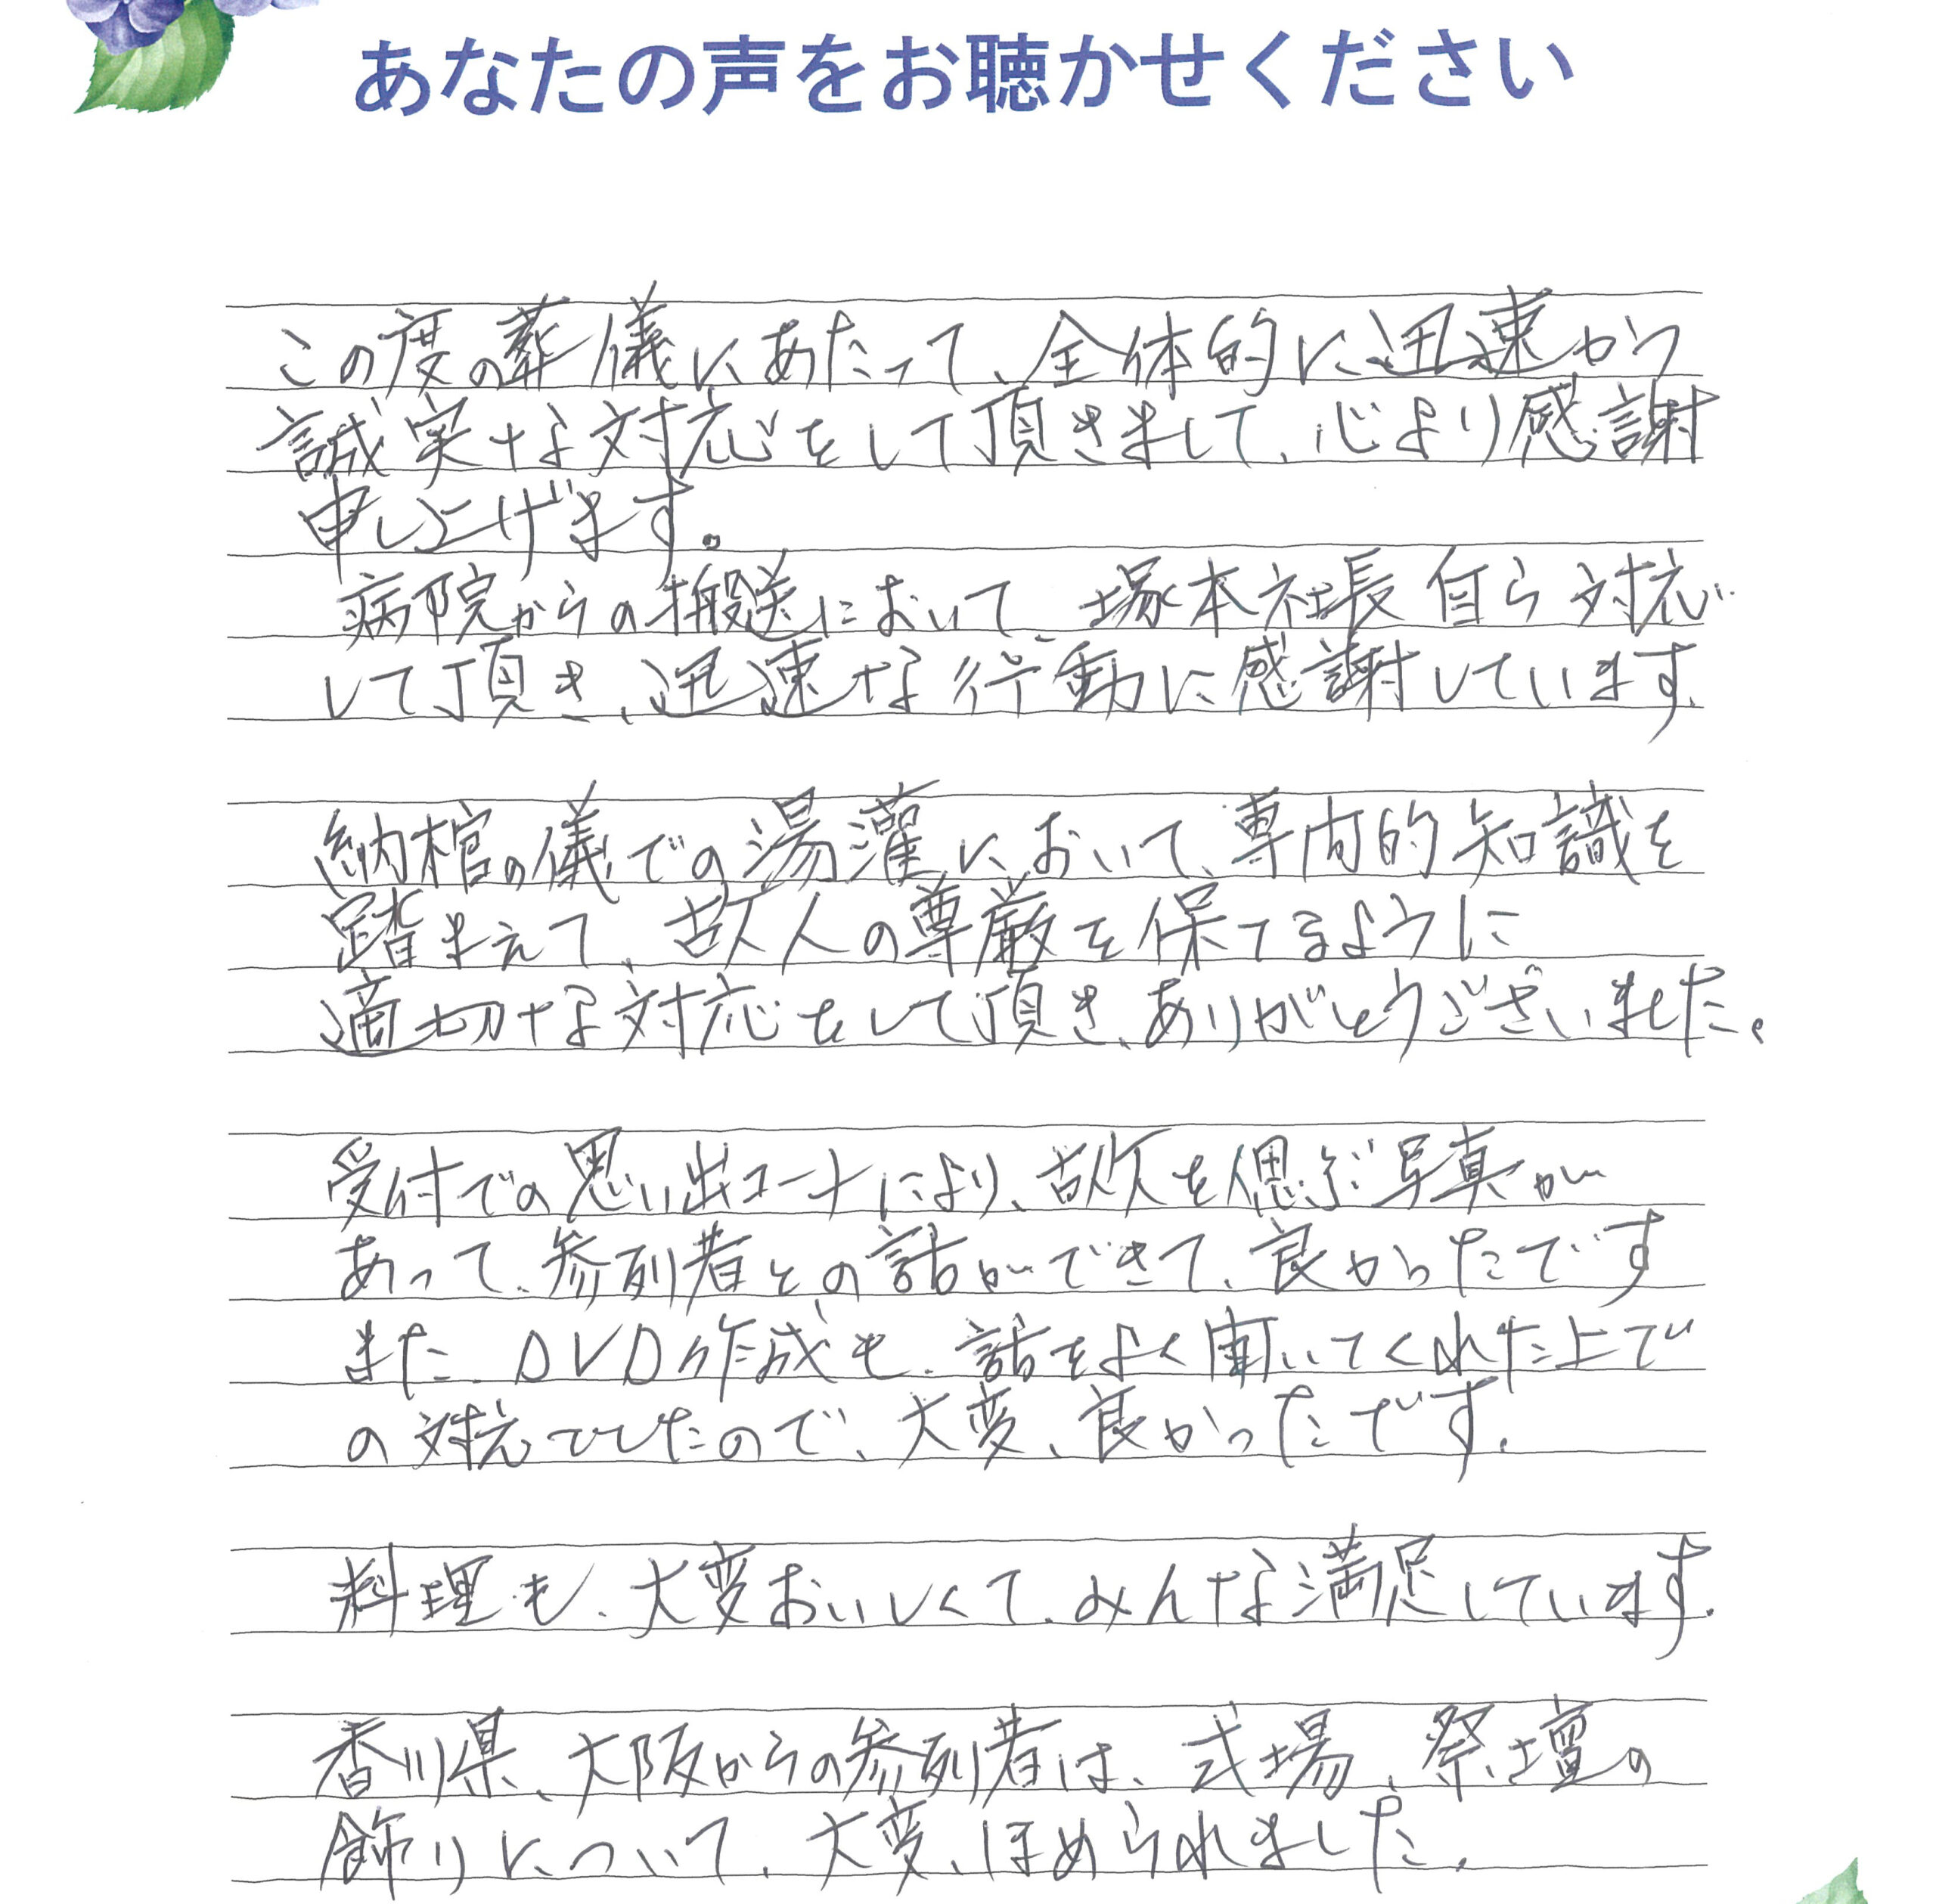 あなたの声をお聴かせください
この度の葬儀にあたって、全体的に迅速かつ
誠実な対応をして頂きまして、心より感謝
申し上げます。
病院からの搬送において、塚本社長自ら対応
して頂き、迅速な行動に感謝しています。
納棺の儀での湯灌において、専門的知識を
踏まえて、故人の尊厳を保てるように
適切な対応をして頂き、ありがとうございました。
受付での思い出コーナーにより、故人を偲ぶ写真が
あって、参列者との話ができて、良かったです
また、DVD作成も、話をよく聞いてくれた上で
の対応でしたので、大変、良かったです。
料理も、大変おいしくて、みんな満足しています。
香川県、大阪からの参列者は、式場、祭壇の
飾りについて、大変、ほめられました。